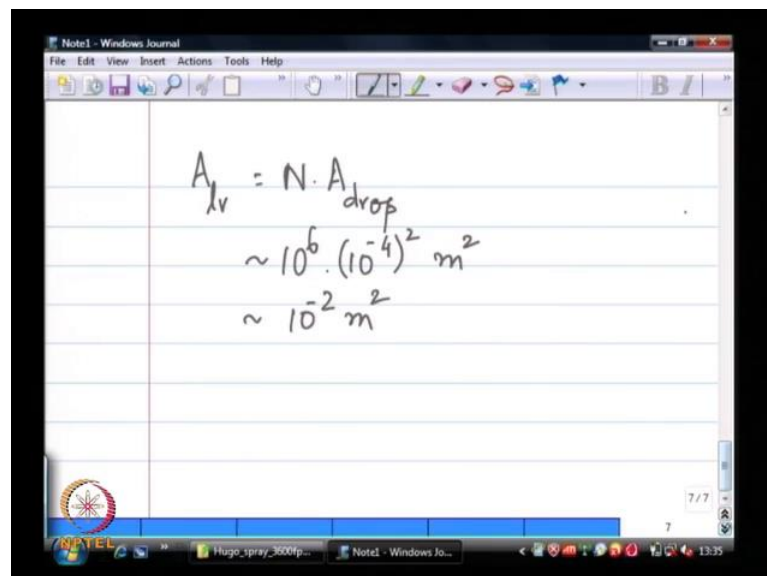 Note1 - Windows Journal
File Edit View Insert Actions Tools Help
B I
A_lv = N. A_drop
~ 10^6 . (10^-4)^2 m^2
~ 10^-2 m^2
7/7
7
NPTEL
Hugo_spray_3600fp...
Note1 - Windows Jo...
13:35